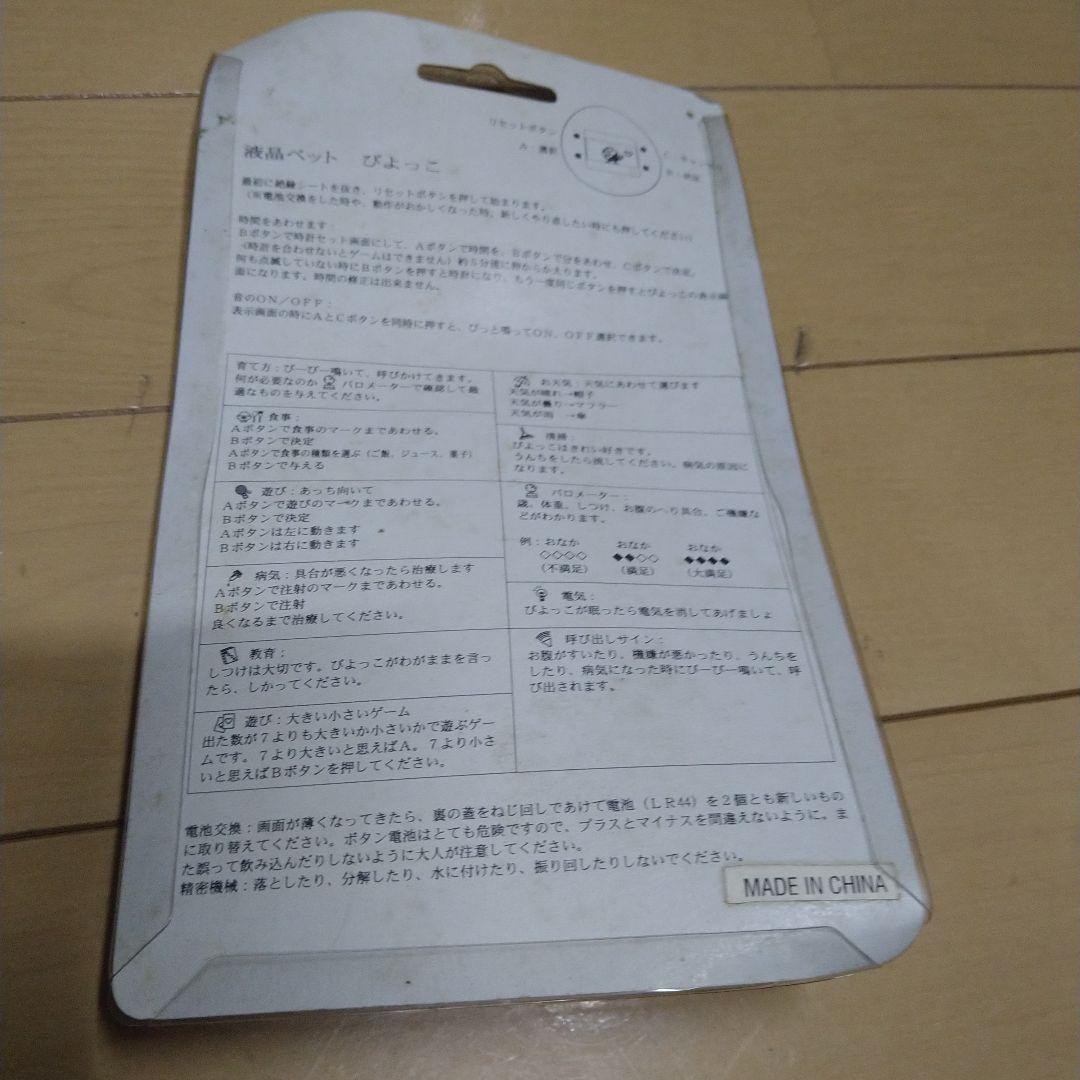 リセットボタン
A：選択
液晶ペット　ぴよっこ
最初に絶縁シートを抜き、リセットボタンを押して始まります。
（※電池交換をした時や、動作がおかしくなった時、新しくやり直したい時にも押してください）
時間をあわせます：
Bボタンで時計セット画面にして、Aボタンで時間を、Bボタンで分をあわせ、Cボタンで決定。
（時計を合わせないとゲームはできません）約5分後に卵からかえります。
何も点滅していない時にBボタンを押すと時計になり、もう一度同じボタンを押すとぴよっこの表示画
面になります。時間の修正は出来ません。
音のON／OFF：
表示画面の時にAとCボタンを同時に押すと、ぴっと鳴ってON、OFF選択できます。
育て方：ぴーぴー鳴いて、呼びかけてきます。
何が必要なのか バロメーターで確認して最
適なものを与えてください。
食事：
Aボタンで食事のマークまであわせる。
Bボタンで決定
Aボタンで食事の種類を選ぶ（ご飯、ジュース、菓子）
Bボタンで与える
遊び：あっち向いて
Aボタンで遊びのマークまであわせる。
Bボタンで決定
Aボタンは左に動きます
Bボタンは右に動きます
病気：具合が悪くなったら治療します
Aボタンで注射のマークまであわせる。
Bボタンで注射
良くなるまで治療してください。
教育：
しつけは大切です。ぴよっこがわがままを言っ
たら、しかってください。
遊び：大きい小さいゲーム
出た数が7よりも大きいか小さいかで遊ぶゲー
ムです。7より大きいと思えばA。7より小さ
いと思えばBボタンを押してください。
お天気：天気にあわせて選びます
天気が晴れ→帽子
天気が曇り→マフラー
天気が雨　→傘
清掃：
ぴよっこはきれい好きです。
うんちをしたら流してください。病気の原因に
なります。
バロメーター：
歳、体重、しつけ、お腹のへり具合、ご機嫌な
どがわかります。
例：おなか　おなか　おなか
◇◇◇◇　◆◆◇◇　◆◆◆◆
（不満足）　（満足）　（大満足）
電気：
ぴよっこが眠ったら電気を消してあげましょ
呼び出しサイン：
お腹がすいたり、機嫌が悪かったり、うんちを
したり、病気になった時にぴーぴー鳴いて、呼
び出されます。
電池交換：画面が薄くなってきたら、裏の蓋をねじ回しであけて電池（LR44）を2個とも新しいもの
に取り替えてください。ボタン電池はとても危険ですので、プラスとマイナスを間違えないように。ま
た誤って飲み込んだりしないように大人が注意してください。
精密機械：落としたり、分解したり、水に付けたり、振り回したりしないでください。
MADE IN CHINA